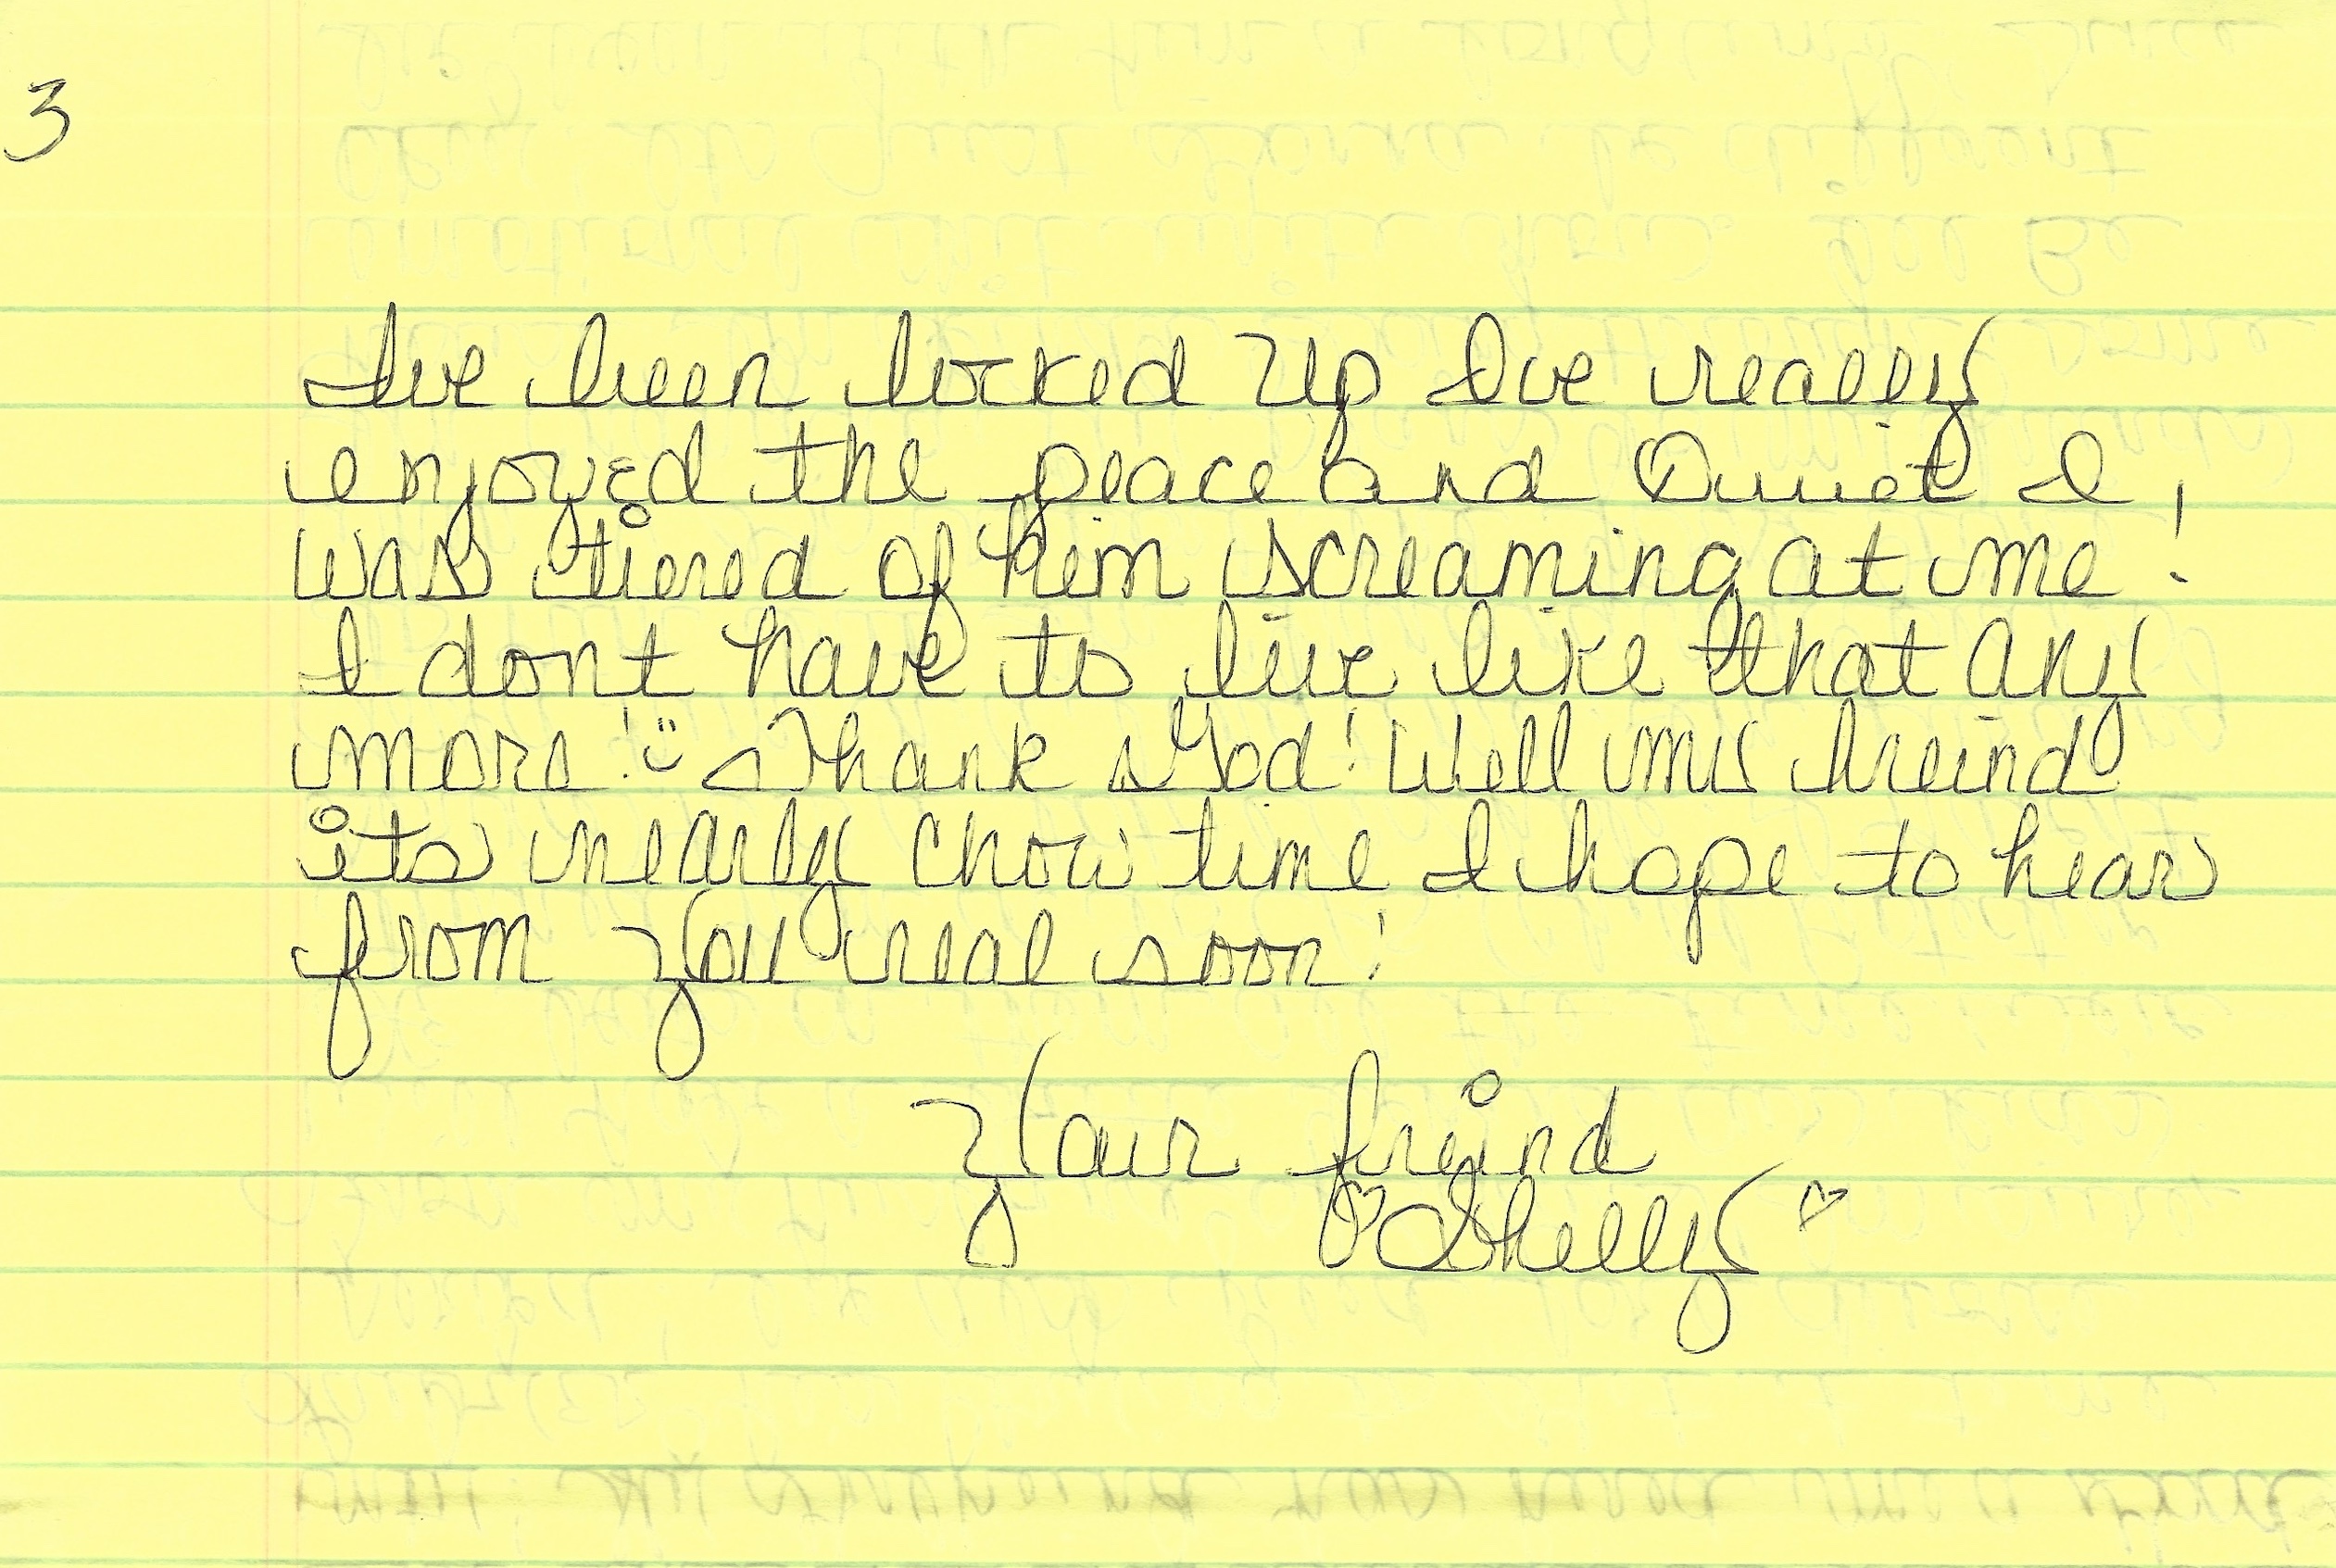 3
Ive been locked up Ive really
enjoyed the peace and Quiet I
was tiered of him screaming at me!
I dont have to live like that any
more! Thank God! Well my freind
its nearly chow time I hope to hear
from you real soon!
Your freind
♡ Shelly ♡